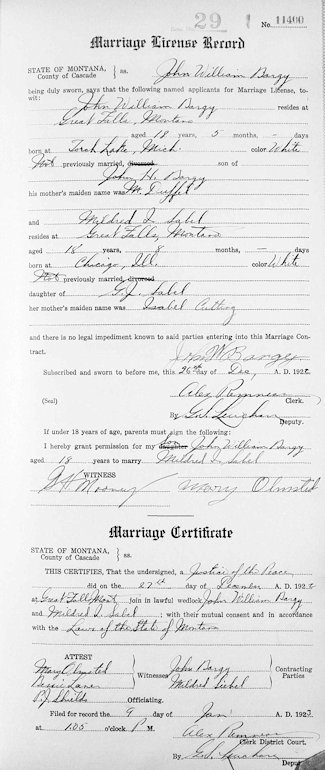 29
No. 11400
Marriage License Record
STATE OF MONTANA, } ss. John William Bargy
County of Cascade
being duly sworn, says that the following named applicants for Marriage License, to-
wit:
John William Bargy resides at
Great Falls, Montana
aged 18 years, 5 months, - days
born at Torch Lake, Mich. color White
Not previously married, divorced son of
John H. Bargy
his mother's maiden name was M. Duffet
and Mildred I. Sabel
resides at Great Falls, Montana
aged 18 years, 8 months, - days
born at Chicago, Ill. color White
Not previously married, divorced
daughter of G. J. Sabel
her mother's maiden name was Isabel Cutting
and there is no legal impediment known to said parties entering into this Marriage Con-
tract.
John W Bargy
Subscribed and sworn to before me, this 26th day of Dec, A. D. 1922
(Seal) Alex Clerk.
By Deputy.
If under 18 years of age, parents must sign the following:
I hereby grant permission for my daughter son John William Bargy
aged 18 years to marry Mildred I. Sabel
WITNESS
Mooney Mary Olmsted
Marriage Certificate
STATE OF MONTANA, } ss.
County of Cascade
THIS CERTIFIES, That the undersigned, a Justice of the Peace
did on the 27th day of December A. D. 1922
at Great Falls, Mont. join in lawful wedlock John William Bargy
and Mildred I. Sabel; with their mutual consent and in accordance
with the Laws of the State of Montana
ATTEST
Mary Olmsted } Witnesses John Bargy } Contracting
Lane Mildred Sabel Parties
Shields Officiating.
Filed for record the 9 day of Jan A. D. 1923
at 1:05 o'clock P. M.
Alex
Clerk District Court.
By Deputy.